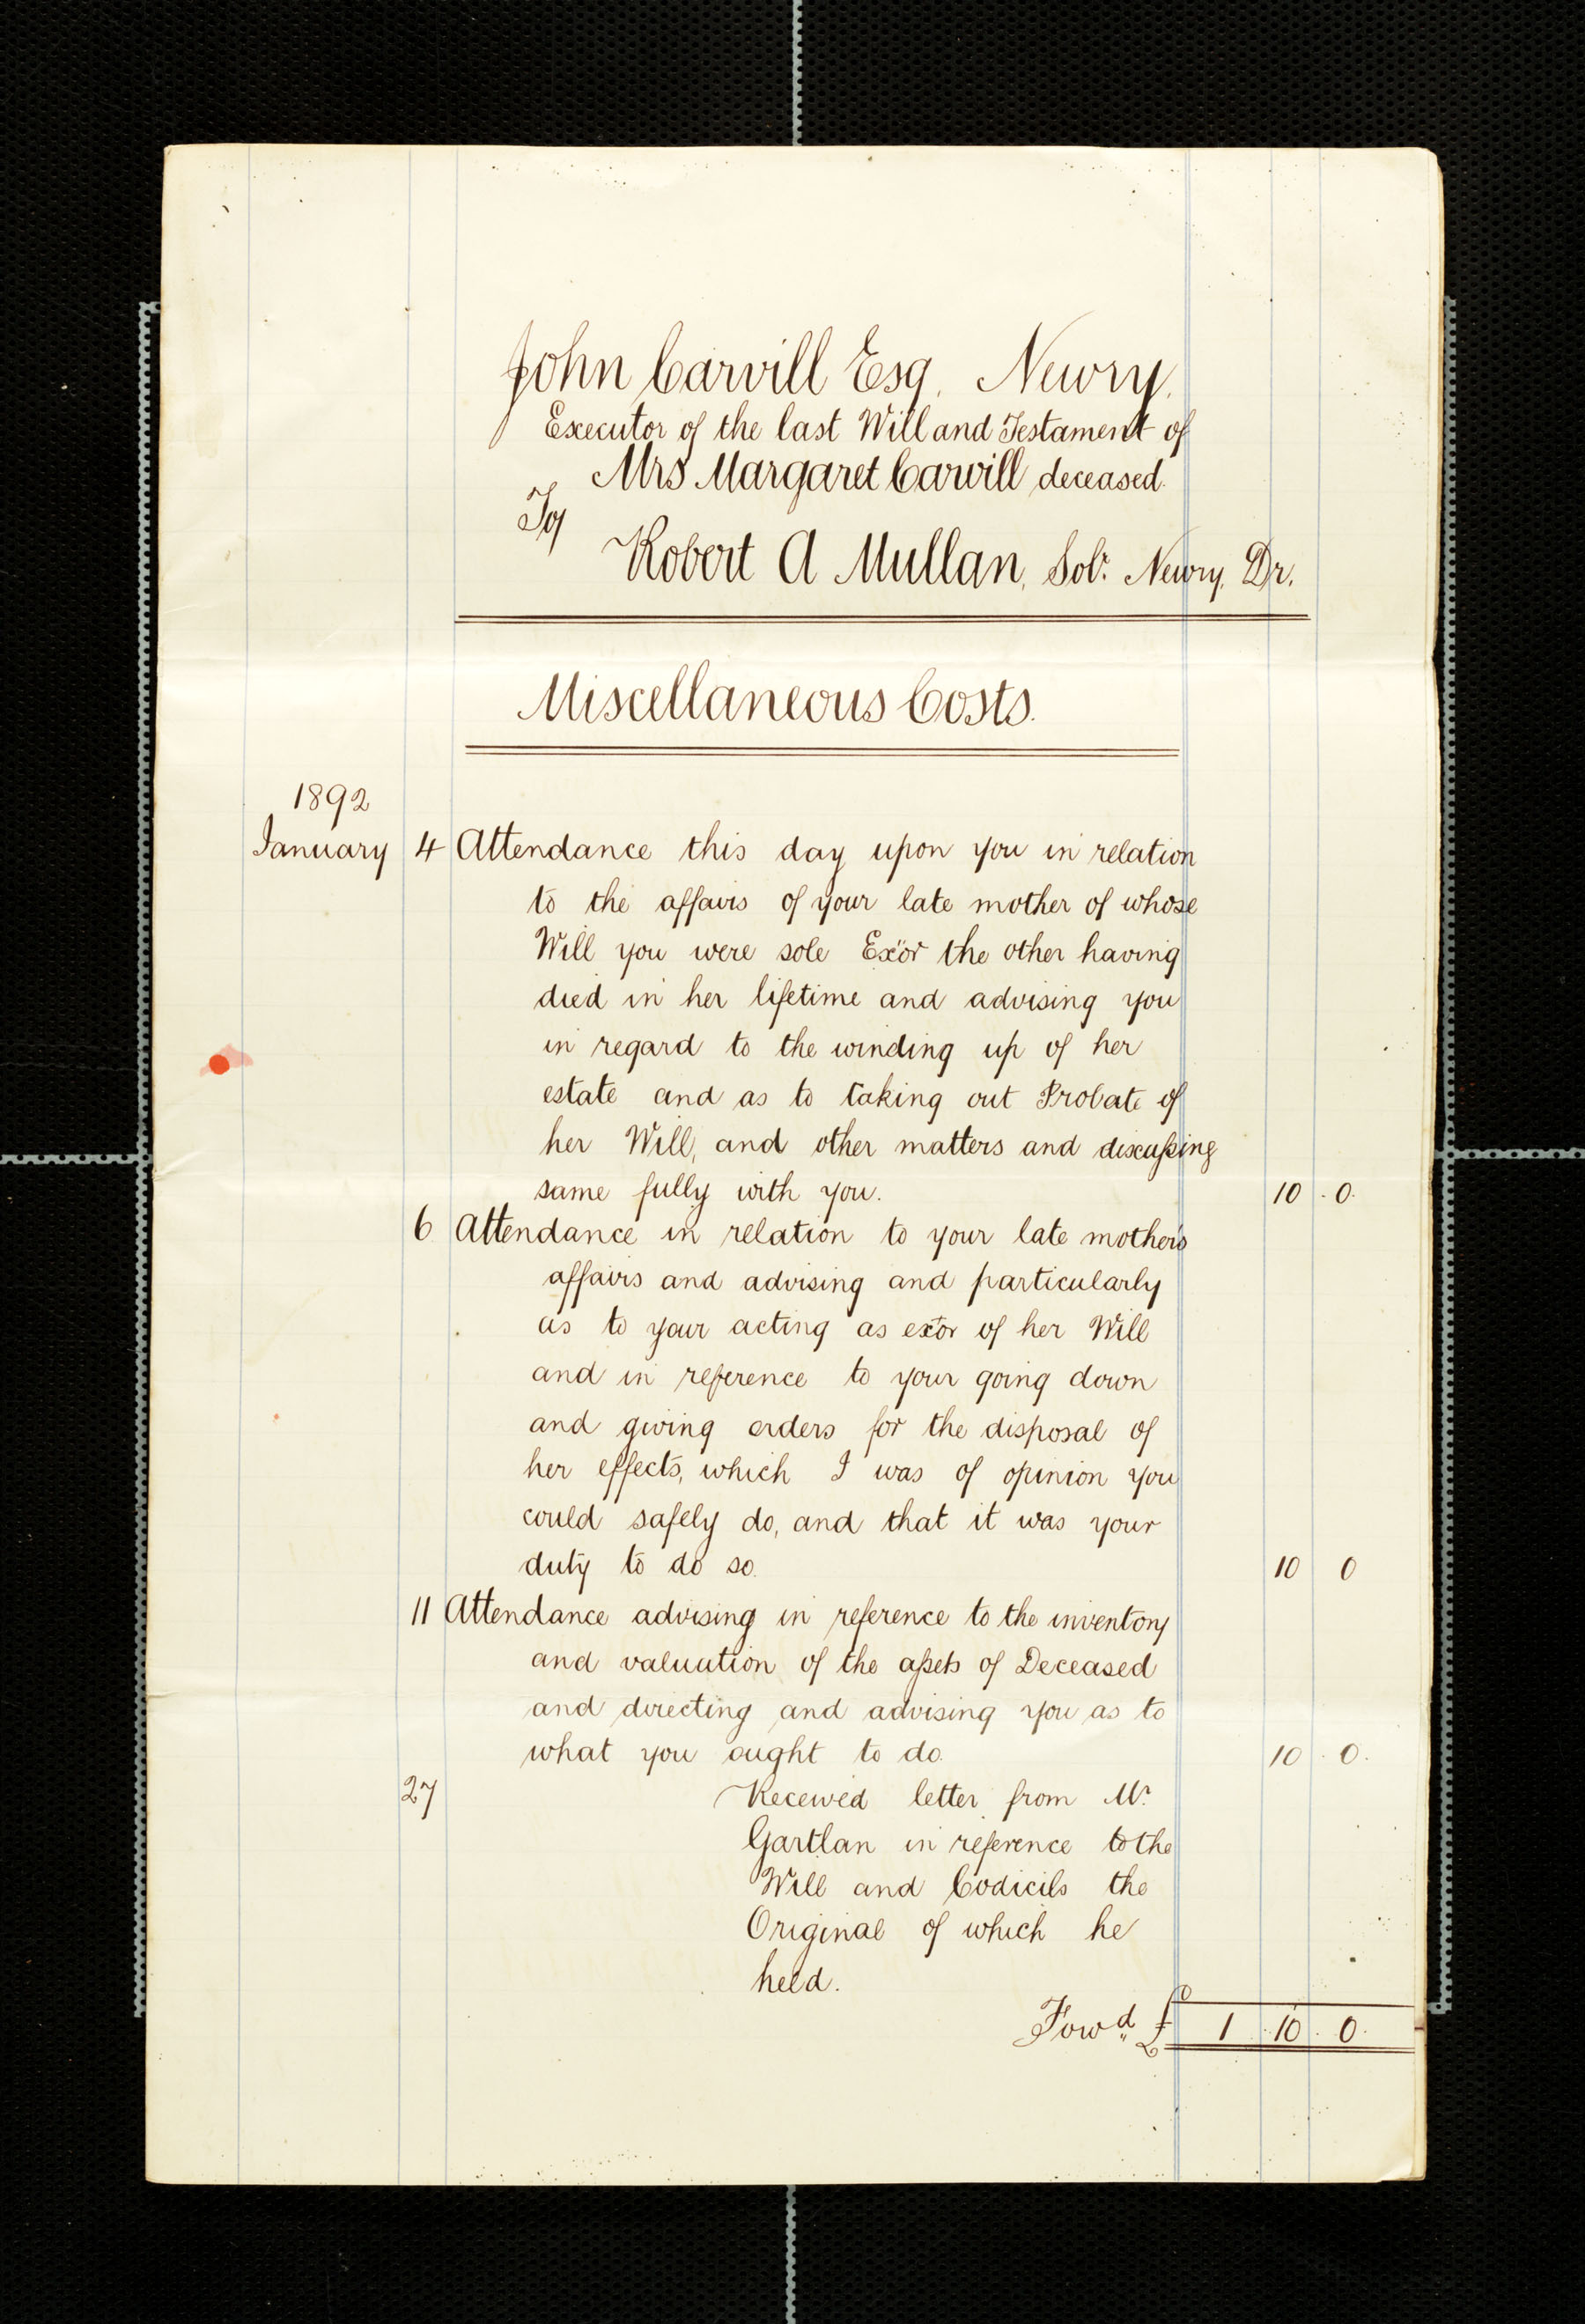 John Carvill Esq. Newry.
Executor of the last Will and Testament of
Mrs Margaret Carvill deceased.
To
Robert A Mullan, Solr. Newry, Dr.
Miscellaneous Costs.
1892
January 4 Attendance this day upon you in relation
to the affairs of your late mother of whose
Will you were sole Exor the other having
died in her lifetime and advising you
in regard to the winding up of her
estate and as to taking out Probate of
her Will, and other matters and discussing
same fully with you. 10 . 0.
6 Attendance in relation to your late mother's
affairs and advising and particularly
as to your acting as exor of her Will
and in reference to your going down
and giving orders for the disposal of
her effects, which I was of opinion you
could safely do, and that it was your
duty to do so. 10 0
11 Attendance advising in reference to the inventory
and valuation of the assets of Deceased
and directing and advising you as to
what you ought to do. 10 . 0.
27 Received letter from Mr.
Gartlan in reference to the
Will and Codicils the
Original of which he
held.
Fowd £ 1 . 10 . 0.